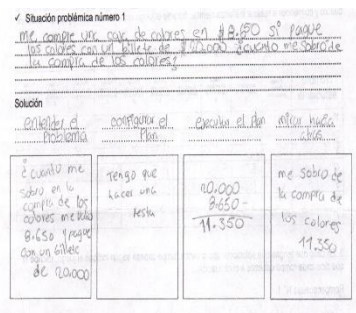 ✓ Situación problémica número 1
me compre una caja de colores en $ 8.650 si pague
los colores con un billete de $ 20.000 ¿cuanto me sobro de
la compra de los colores?
Solución
entender el
Problema
configurar el
Plan
ejecutar el plan
mirar hacia
atras
¿cuanto me
sobro en la
compra de los
colores me
8.650 y pague
con un billete
de 20.000
Tengo que
hacer una
resta
20.000
8.650 -
11.350
me sobro de
la compra de
los colores
11.350